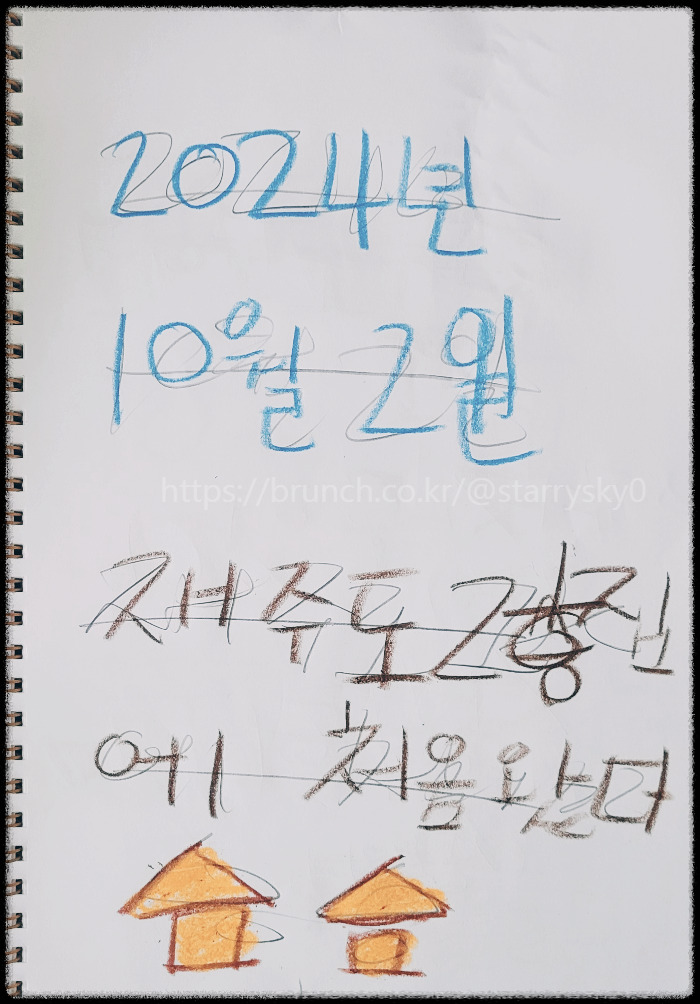 2024년
10월 2월
재주도 2층집
에 처음 왔다
https://brunch.co.kr/@starrysky0